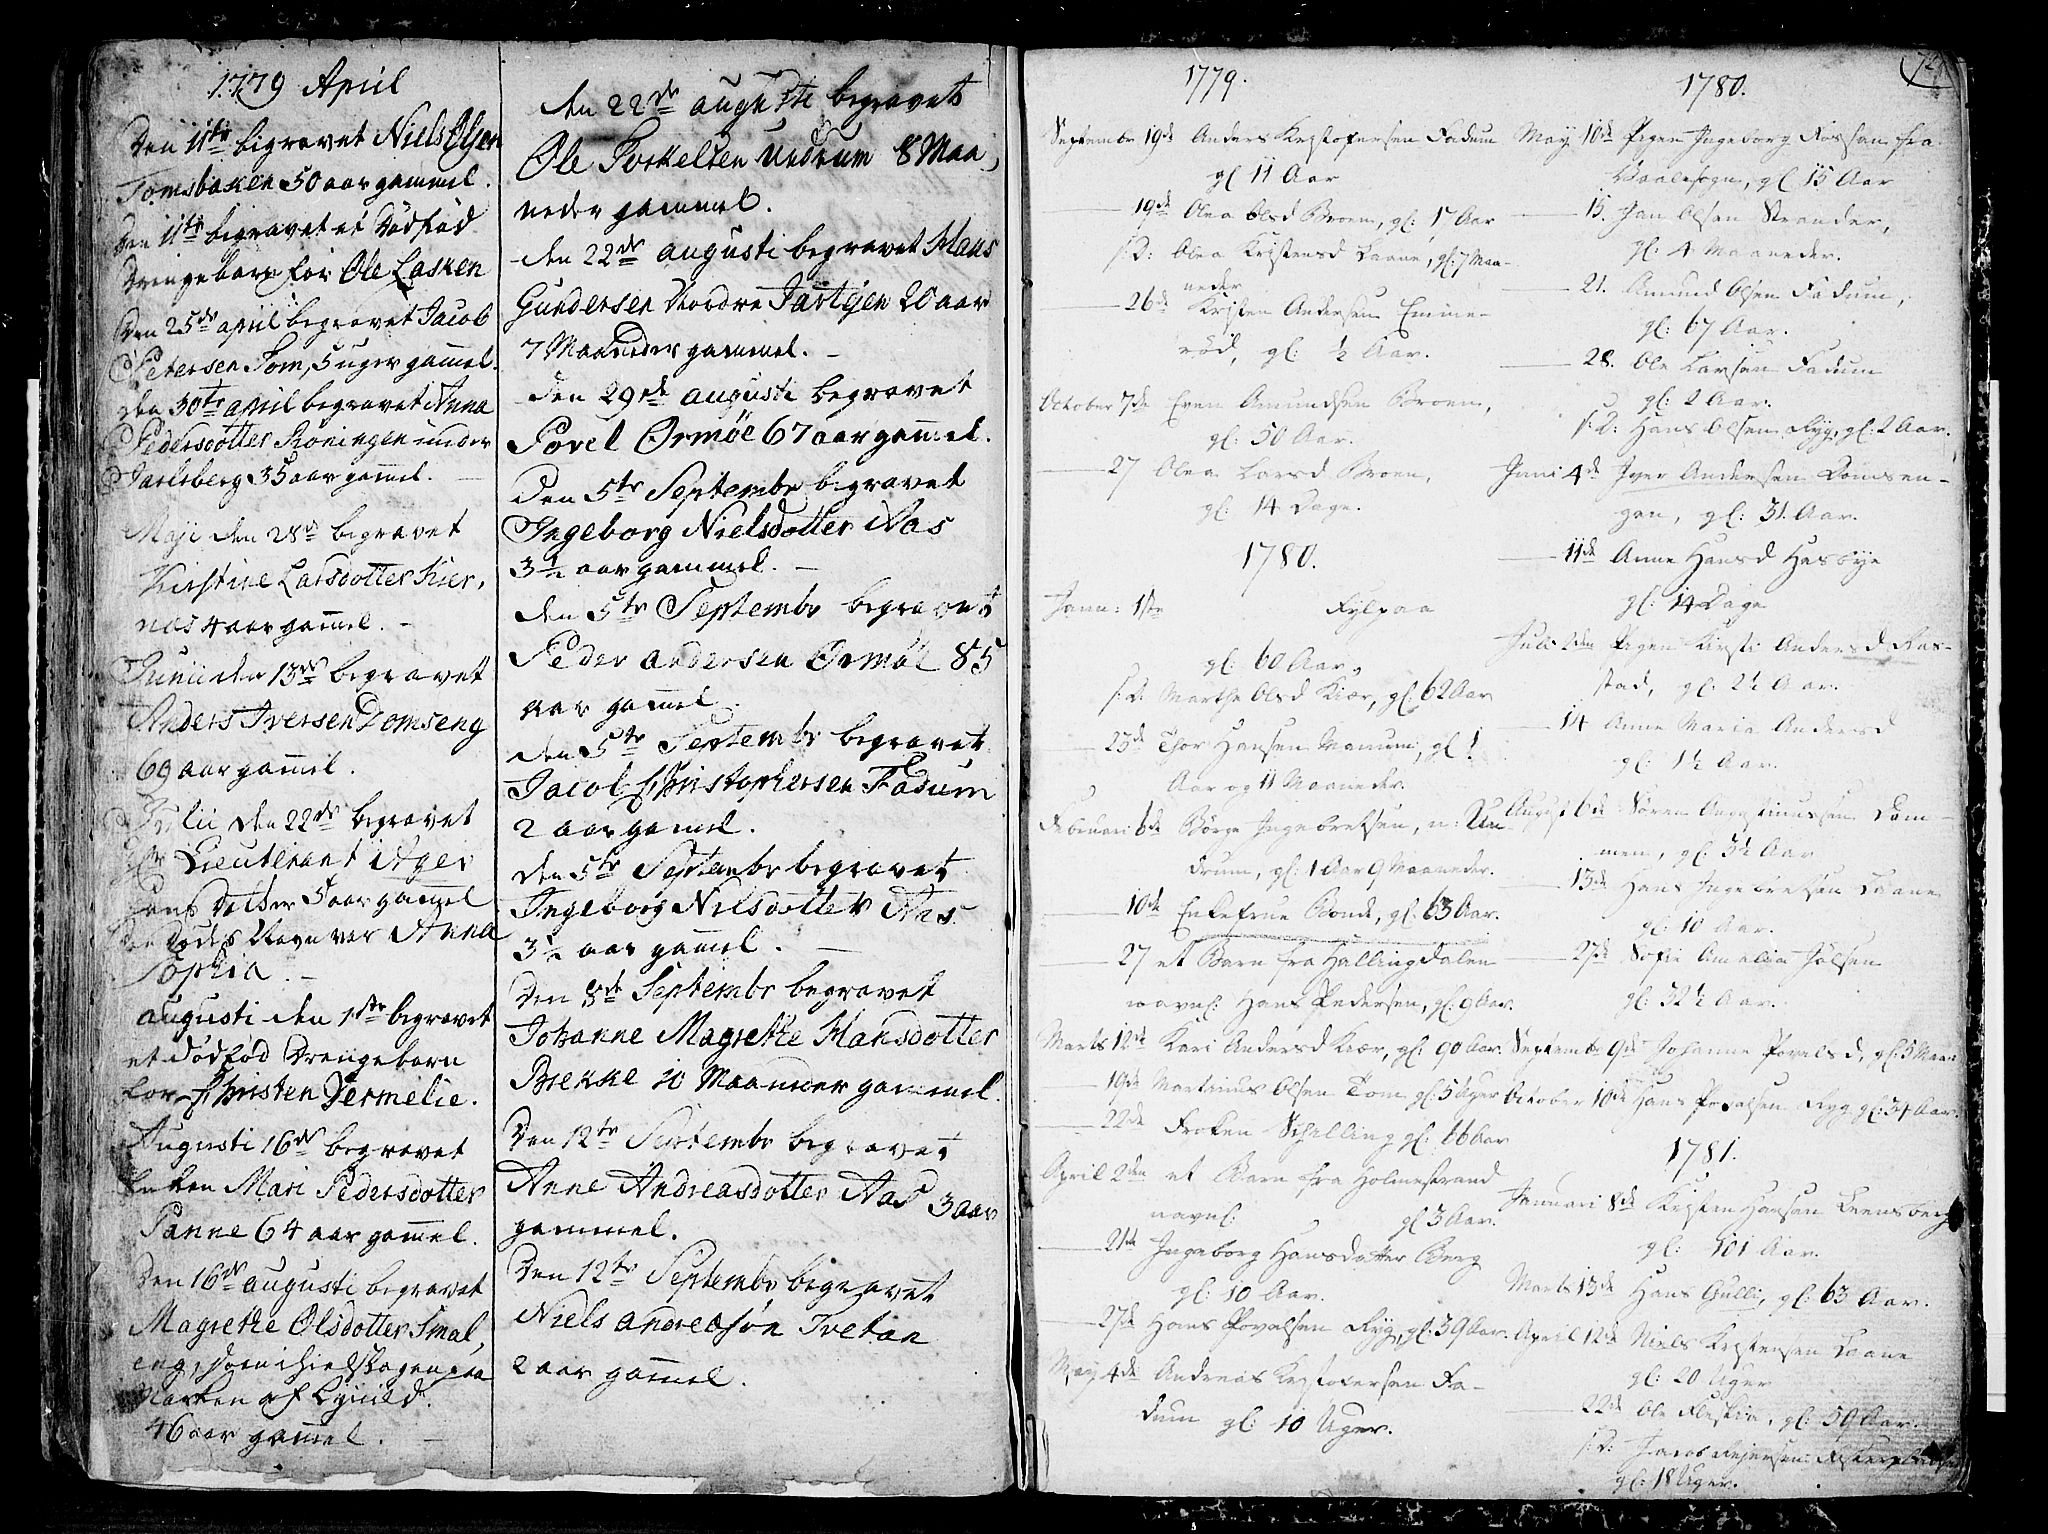 1779 April
Den 11te begravet Niels Olsen
Tomsbakken 50 aar gammel.
Den 11te begravet et Dødfød
Drengebarn for Ole Lasken
Den 25de april begravet Jacob
Petersen Tom, 5 uger gammel.
den 30te april begravet Anna
Pedersdotter Roningen under
Jarlsberg 35 aar gammel.
Maji den 28de begravet
Kirstine Larsdotter Kier,
nas 4 aar gammel.
Junii den 13de begravet
Anders Iversen Domseng
69 aar gammel.
Julii den 22de begravet
Lieutenant Ager
Hans Datter 5 aar gammel
Den Dødes Navn var Anna
Sophia.
augusti den 1ste begravet
et dødfød Drengebarn
for Christen Vermelie.
Augusti 16de begravet
Enken Mari Pedersdotter
Panne 64 aar gammel.
Den 16de augusti begravet
Magrethe Olsdotter Smal,
eng, som ihielslagen paa
Marken af Lynild.
46 aar gammel.
den 22de augusti begravet
Ole Torkelsen Undrum 8 Maa,
neder gammel.
den 22de augusti begravet Hans
Gundersen Nordre Jarteen 20 aar
7 Maaneder gammel.
den 29de augusti begravet
Povel Ormøe 67 aar gammel.
Den 5te Septembr begravet
Ingeborg Nielsdotter Aas
3 1/2 aar gammel.
den 5te Septembr begravet
Peder andersen Ormøe 85
aar gammel
den 5te Septembr begravet
Jacob Christophersen Fadum
2 aar gamel.
den 5te Septembr begravet
Ingeborg Nilsdotter Aas
3 1/2 aar gammel.
Den 8de Septembr begravet
Johanne Magrethe Hansdotter
Brekke 10 Maaneder gammel.
Den 12te Septembr begravet
Anne Andreasdotter Aas 3 aar
gammel.
Den 12te Septembr begravet
Niels andreasøn Tvetan
2 aar gammel.
1779.
Septembr 19de Anders Krstofersen Fadum
gl 11 Aar
19de Olea Olsd Broen, gl: 17 Aar
s: D: Olea Kristensd Laane, gl: 7 Maa-
neder
26de Kristen Andersen Emme-
rød, gl: 1/2 Aar.
October 7de Even Amundsen Broen,
gl: 50 Aar.
27 Olea Larsd Broen,
gl: 14 Dage.
1780.
Janu: 1ste Fylpaa
gl: 60 Aar,
s: D: Marthe Olsd Kiær, gl: 62 Aar
23de Thor Hansen Manum, gl 1
Aar og 11 Maaneder.
Februari 6de Børge Ingebretsen, n: Un-
drum, gl: 1 Aar 9 Maaneder.
10de Enkefrue Bonde, gl: 63 Aar.
27 et Barn fra Hallingdalen
navnl: Hans Pedersen, gl: 9 Aar.
Marts 12te Kari Andersd Kiær, gl: 90 Aar.
19de Martinus Olsen Tom gl: 5 Uger
22de Frøken Schelling gl: 66 Aar
April 2den et Barn fra Holmestrand
navnl: gl 3 Aar.
21de Ingeborg Hansdatter Berg
gl: 10 Aar.
27de Hans Povelsen Ryg, gl: 39 Aar.
May 4de Andreas Krstofersen Fa-
dum gl: 10 Uger.
1780.
May 10de Pigen Ingeborg fra
Vaalesogn, gl 15 Aar
15. Jan Olsen Strander,
gl: 4 Maaneder.
21. Amund Olsen Fadum,
gl: 67 Aar.
28. Ole Larsen Fadum
gl: 2 Aar.
s: D: Hans Olsen Ryg, gl: 2 Aar.
Juni 4de Iver Andersen Domsen-
gen, gl: 31. Aar.
11de Anne Hansd Hasbye
gl: 14 Dage
Juli 2den Pigen Kirsti Andersd Ras-
stad, gl: 2 1/2 Aar.
14 Anne Maria Andersd
gl: 1 1/2 Aar.
August 6de Søren Augustinussen Dom-
men, gl: 3 1/2 Aar
13de Hans Ingebretsen Laane
gl: 10 Aar.
27de Sofie Amalia Jølsen
gl: 32 1/2 Aar.
Septembr 9de Johanne Povelsd, gl: 5 Maan
October 10de Hans Povelsen Ryg gl: 34 Aar.
1781.
Januari 8de Kristen Hansen Leensberg
gl: 101 Aar.
Marts 13de Hans Gulli, gl: 63 Aar.
April 12de Niels Kristensen Laane
gl: 20 Uger
22de Ole Fleskia, gl: 59 Aar.
s: D: Jacob
gl: 18 Uger.